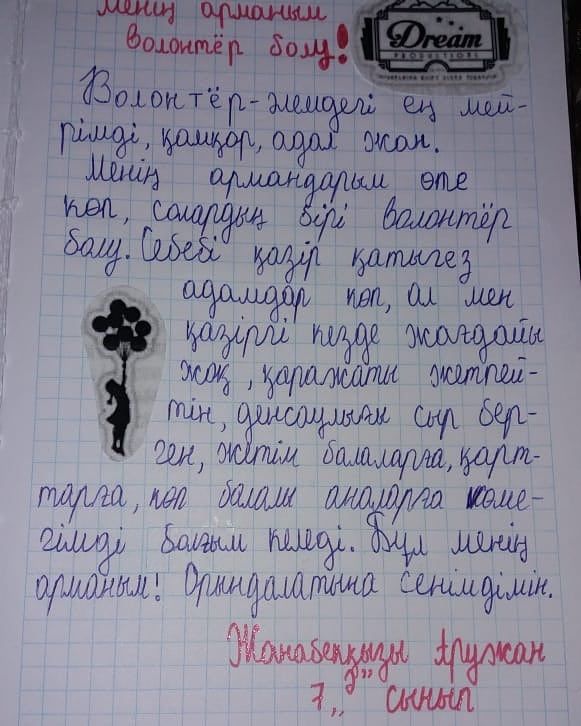 Менің арманым
волонтёр болу!
Dream
PRODUCTIONS
Волонтёр-әлемдегі ең мей-
рімді, қамқор, адал жан.
Менің армандарым өте
көп, солардың бірі волонтёр
болу. Себебі қазір қатыгез
адамдар көп, ал мен
қазіргі кезде жағдайы
жоқ, қаражаты жетпей-
тін, денсаулығы сыр бер-
ген, жетім балаларға, қарт-
тарға, көп балалы аналарға көме-
гімді болғым келеді. Бұл менің
арманым! Орындалатына сенімдімін.
Жанабекқызы Аружан
7 „З" сынып